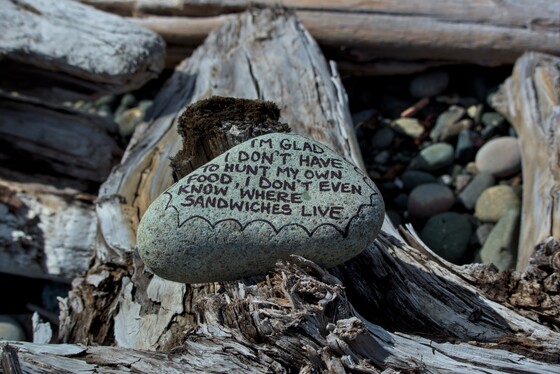 I'M GLAD
I DON'T HAVE
TO HUNT MY OWN
FOOD, I DON'T EVEN
KNOW WHERE
SANDWICHES LIVE.